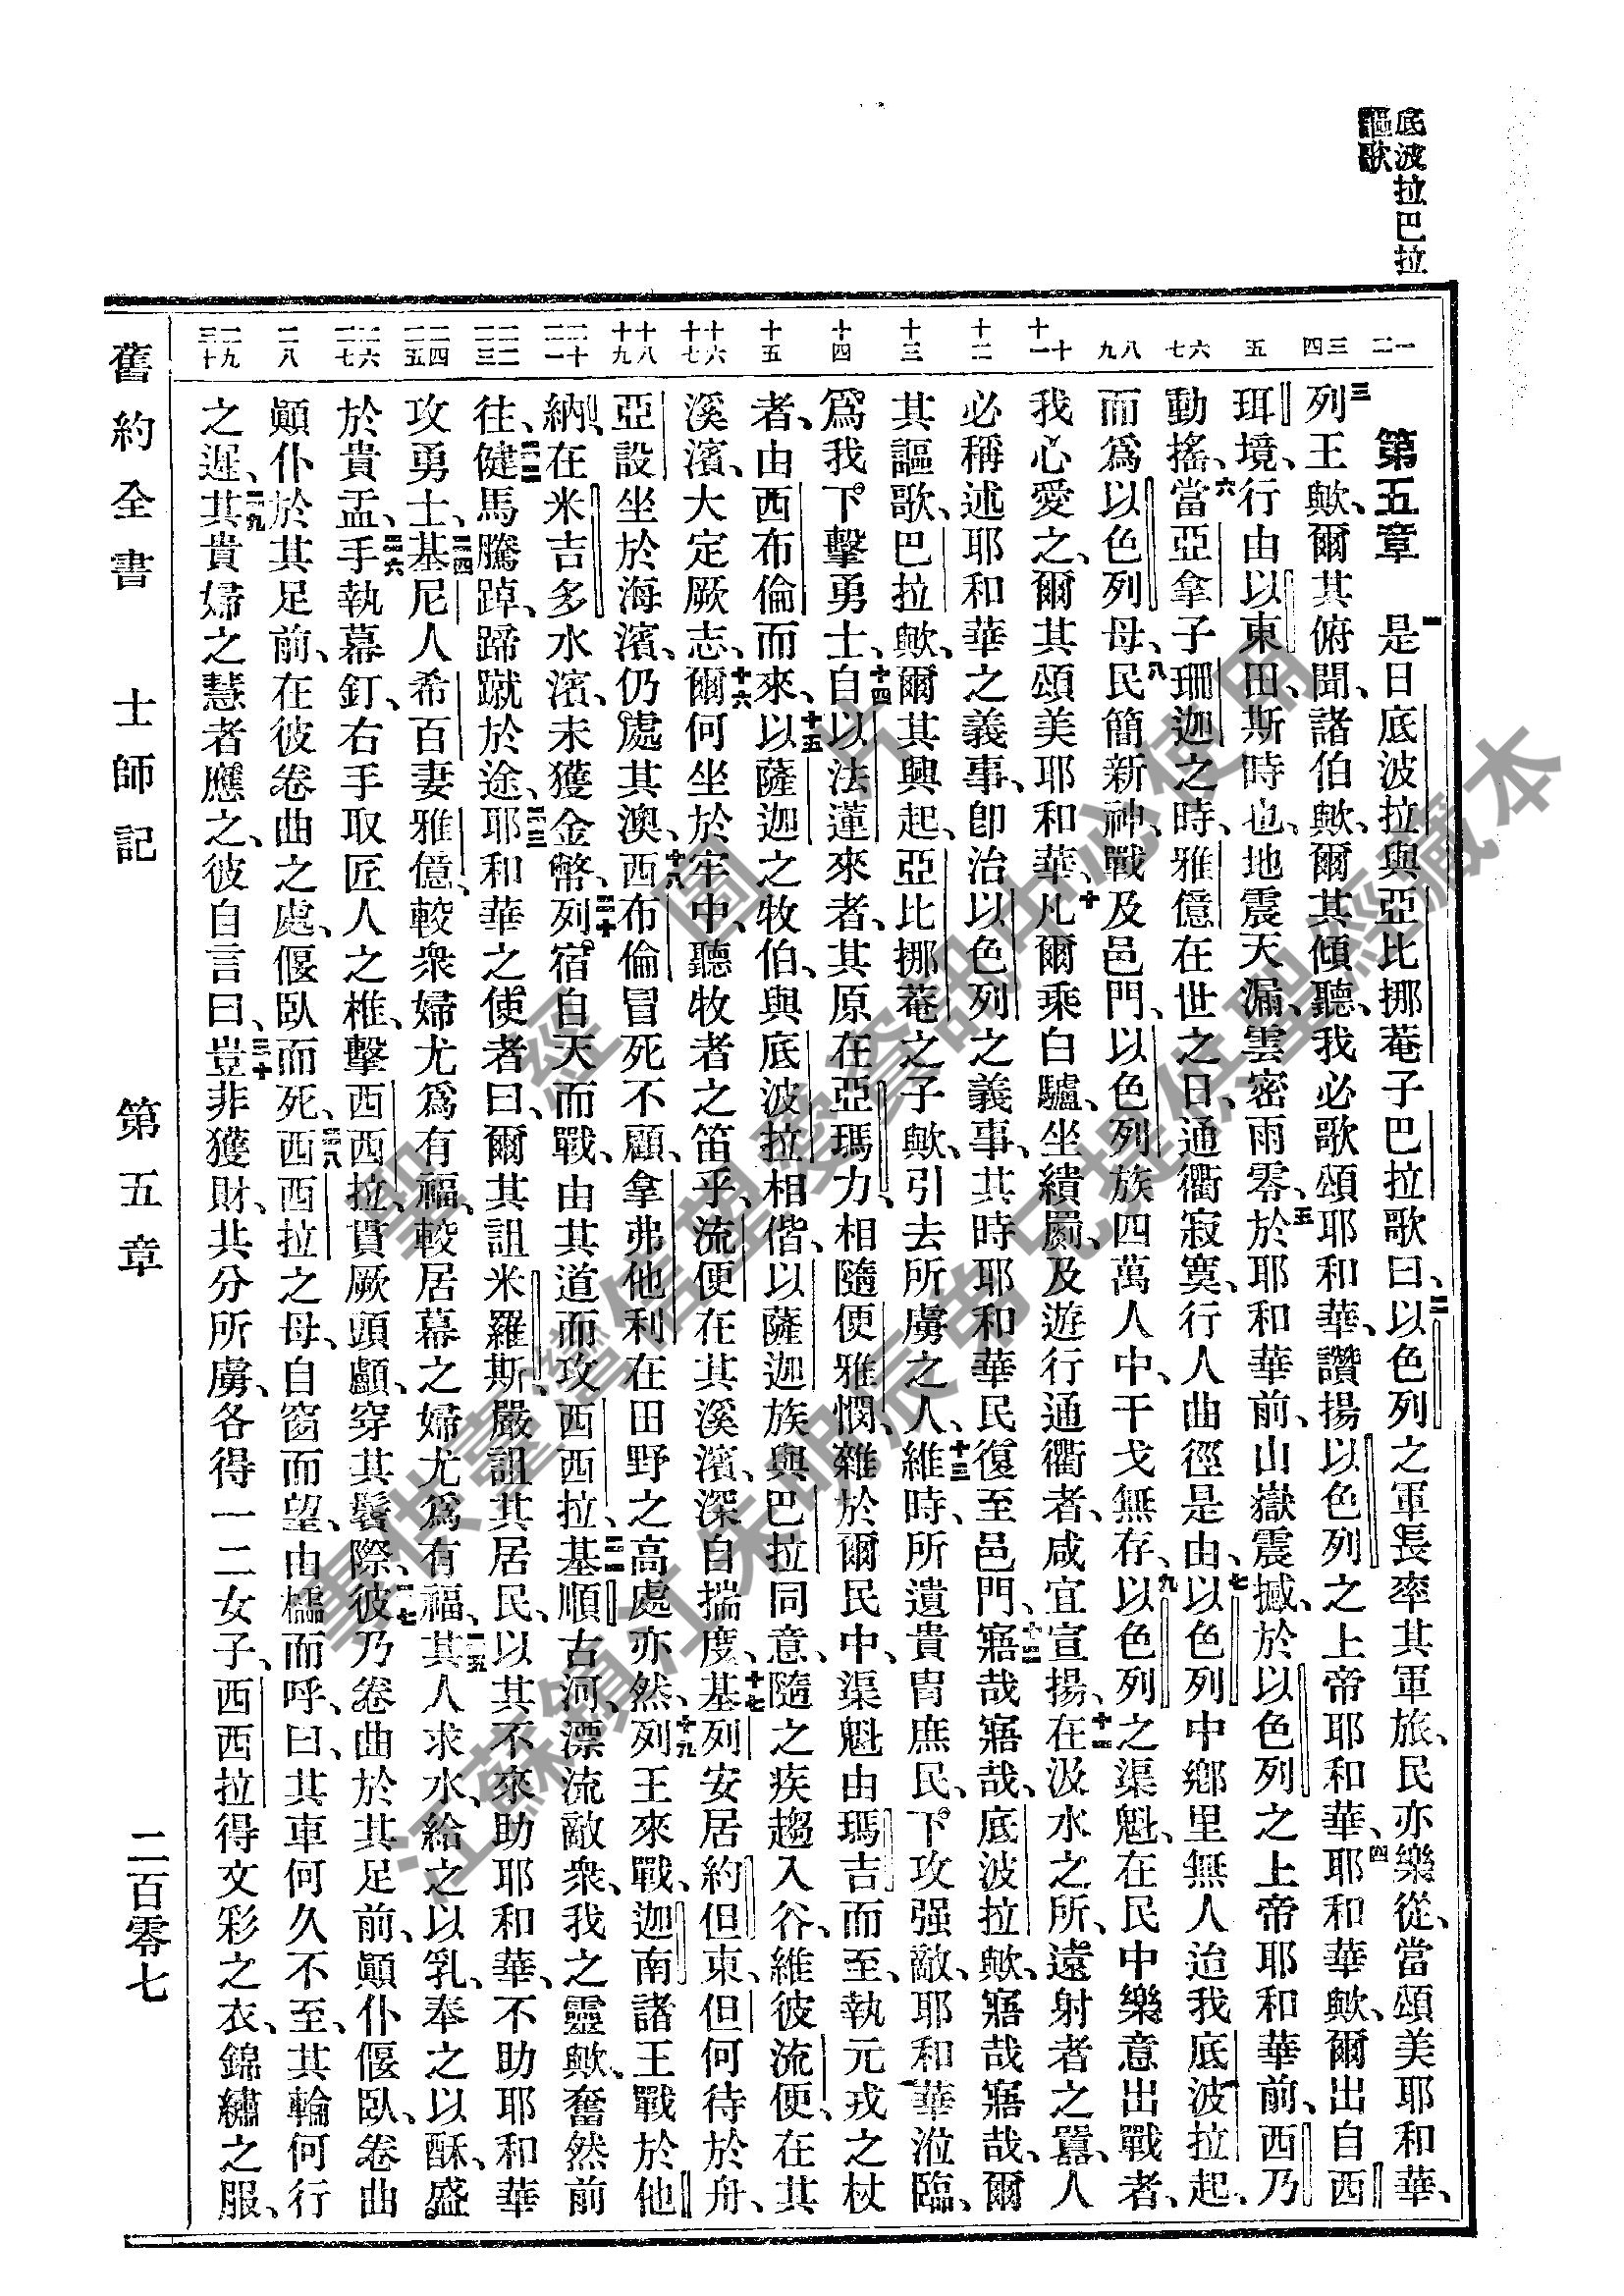 底波拉巴拉
謳歌
一 二
三 四
五
六 七
八 九
十 十一
十二
十三
十四
十五
十六 十七
十八 十九
二十 二一
二二 二三
二四 二五
二六 二七
二八
二九 三十
第五章 一是日底波拉與亞比挪菴子巴拉歌曰、二以色列之軍長率其軍旅、民亦樂從、當頌美耶和華、
三列王歟、爾其俯聞、諸伯歟、爾其傾聽、我必歌頌耶和華、讚揚以色列之上帝耶和華、四耶和華歟、爾出自西
珥境、行由以東田、斯時也、地震天漏、雲密雨零、五於耶和華前、山嶽震撼、於以色列之上帝耶和華前、西乃
動搖、六當亞拿子珊迦之時、雅億在世之日、通衢寂寞、行人曲徑是由、七以色列中鄉里無人、迨我底波拉起、
而爲以色列母、八民簡新神、戰及邑門、以色列族四萬人中、干戈無存、九以色列之渠魁、在民中樂意出戰者、
我心愛之、爾其頌美耶和華、十凡爾乘白驢、坐繢罽、及遊行通衢者、咸宜宣揚、十一在汲水之所、遠射者之囂、人
必稱述耶和華之義事、卽治以色列之義事、其時耶和華民復至邑門、十二寤哉寤哉、底波拉歟、寤哉寤哉、爾
其謳歌、巴拉歟、爾其興起、亞比挪菴之子歟、引去所虜之人、十三維時、所遺貴冑庶民、下攻强敵、耶和華涖臨、
爲我下擊勇士、十四自以法蓮來者、其原在亞瑪力、相隨便雅憫、雜於爾民中、渠魁由瑪吉而至、執元戎之杖
者、由西布倫而來、十五以薩迦之牧伯、與底波拉相偕、以薩迦族與巴拉同意、隨之疾趨入谷、維彼流便、在其
溪濱、大定厥志、十六爾何坐於牢中、聽牧者之笛乎、流便在其溪濱、深自揣度、十七基列安居約但東、但何待於舟、
亞設坐於海濱、仍處其澳、十八西布倫冒死不顧、拿弗他利在田野之高處亦然、十九列王來戰、迦南諸王戰於他
納、在米吉多水濱、未獲金幣、二十列宿自天而戰、由其道而攻西西拉、二一基順古河、漂流敵衆、我之靈歟、奮然前
往、二二健馬騰踔、蹄蹴於途、二三耶和華之使者曰、爾其詛米羅斯、嚴詛其居民、以其不來助耶和華、不助耶和華
攻勇士、二四基尼人希百妻雅億、較衆婦尤爲有福、較居幕之婦尤爲有福、二五其人求水、給之以乳、奉之以酥、盛
於貴盂、二六手執幕釘、右手取匠人之椎、擊西西拉、貫厥頭顱、穿其鬢際、二七彼乃卷曲於其足前、顚仆偃臥、卷曲
顚仆於其足前、在彼卷曲之處、偃臥而死、二八西西拉之母、自窗而望、由櫺而呼、曰、其車何久不至、其輪何行
之遲、二九其貴婦之慧者應之、彼自言曰、三十豈非獲財、共分所虜、各得一二女子、西西拉得文彩之衣、錦繡之服、
舊約全書 士師記 第五章 二百零七
聖經圖片
專供臺灣信望愛資訊中心使用
江蘇鎮江朱明辰弟兄提供聖經藏本